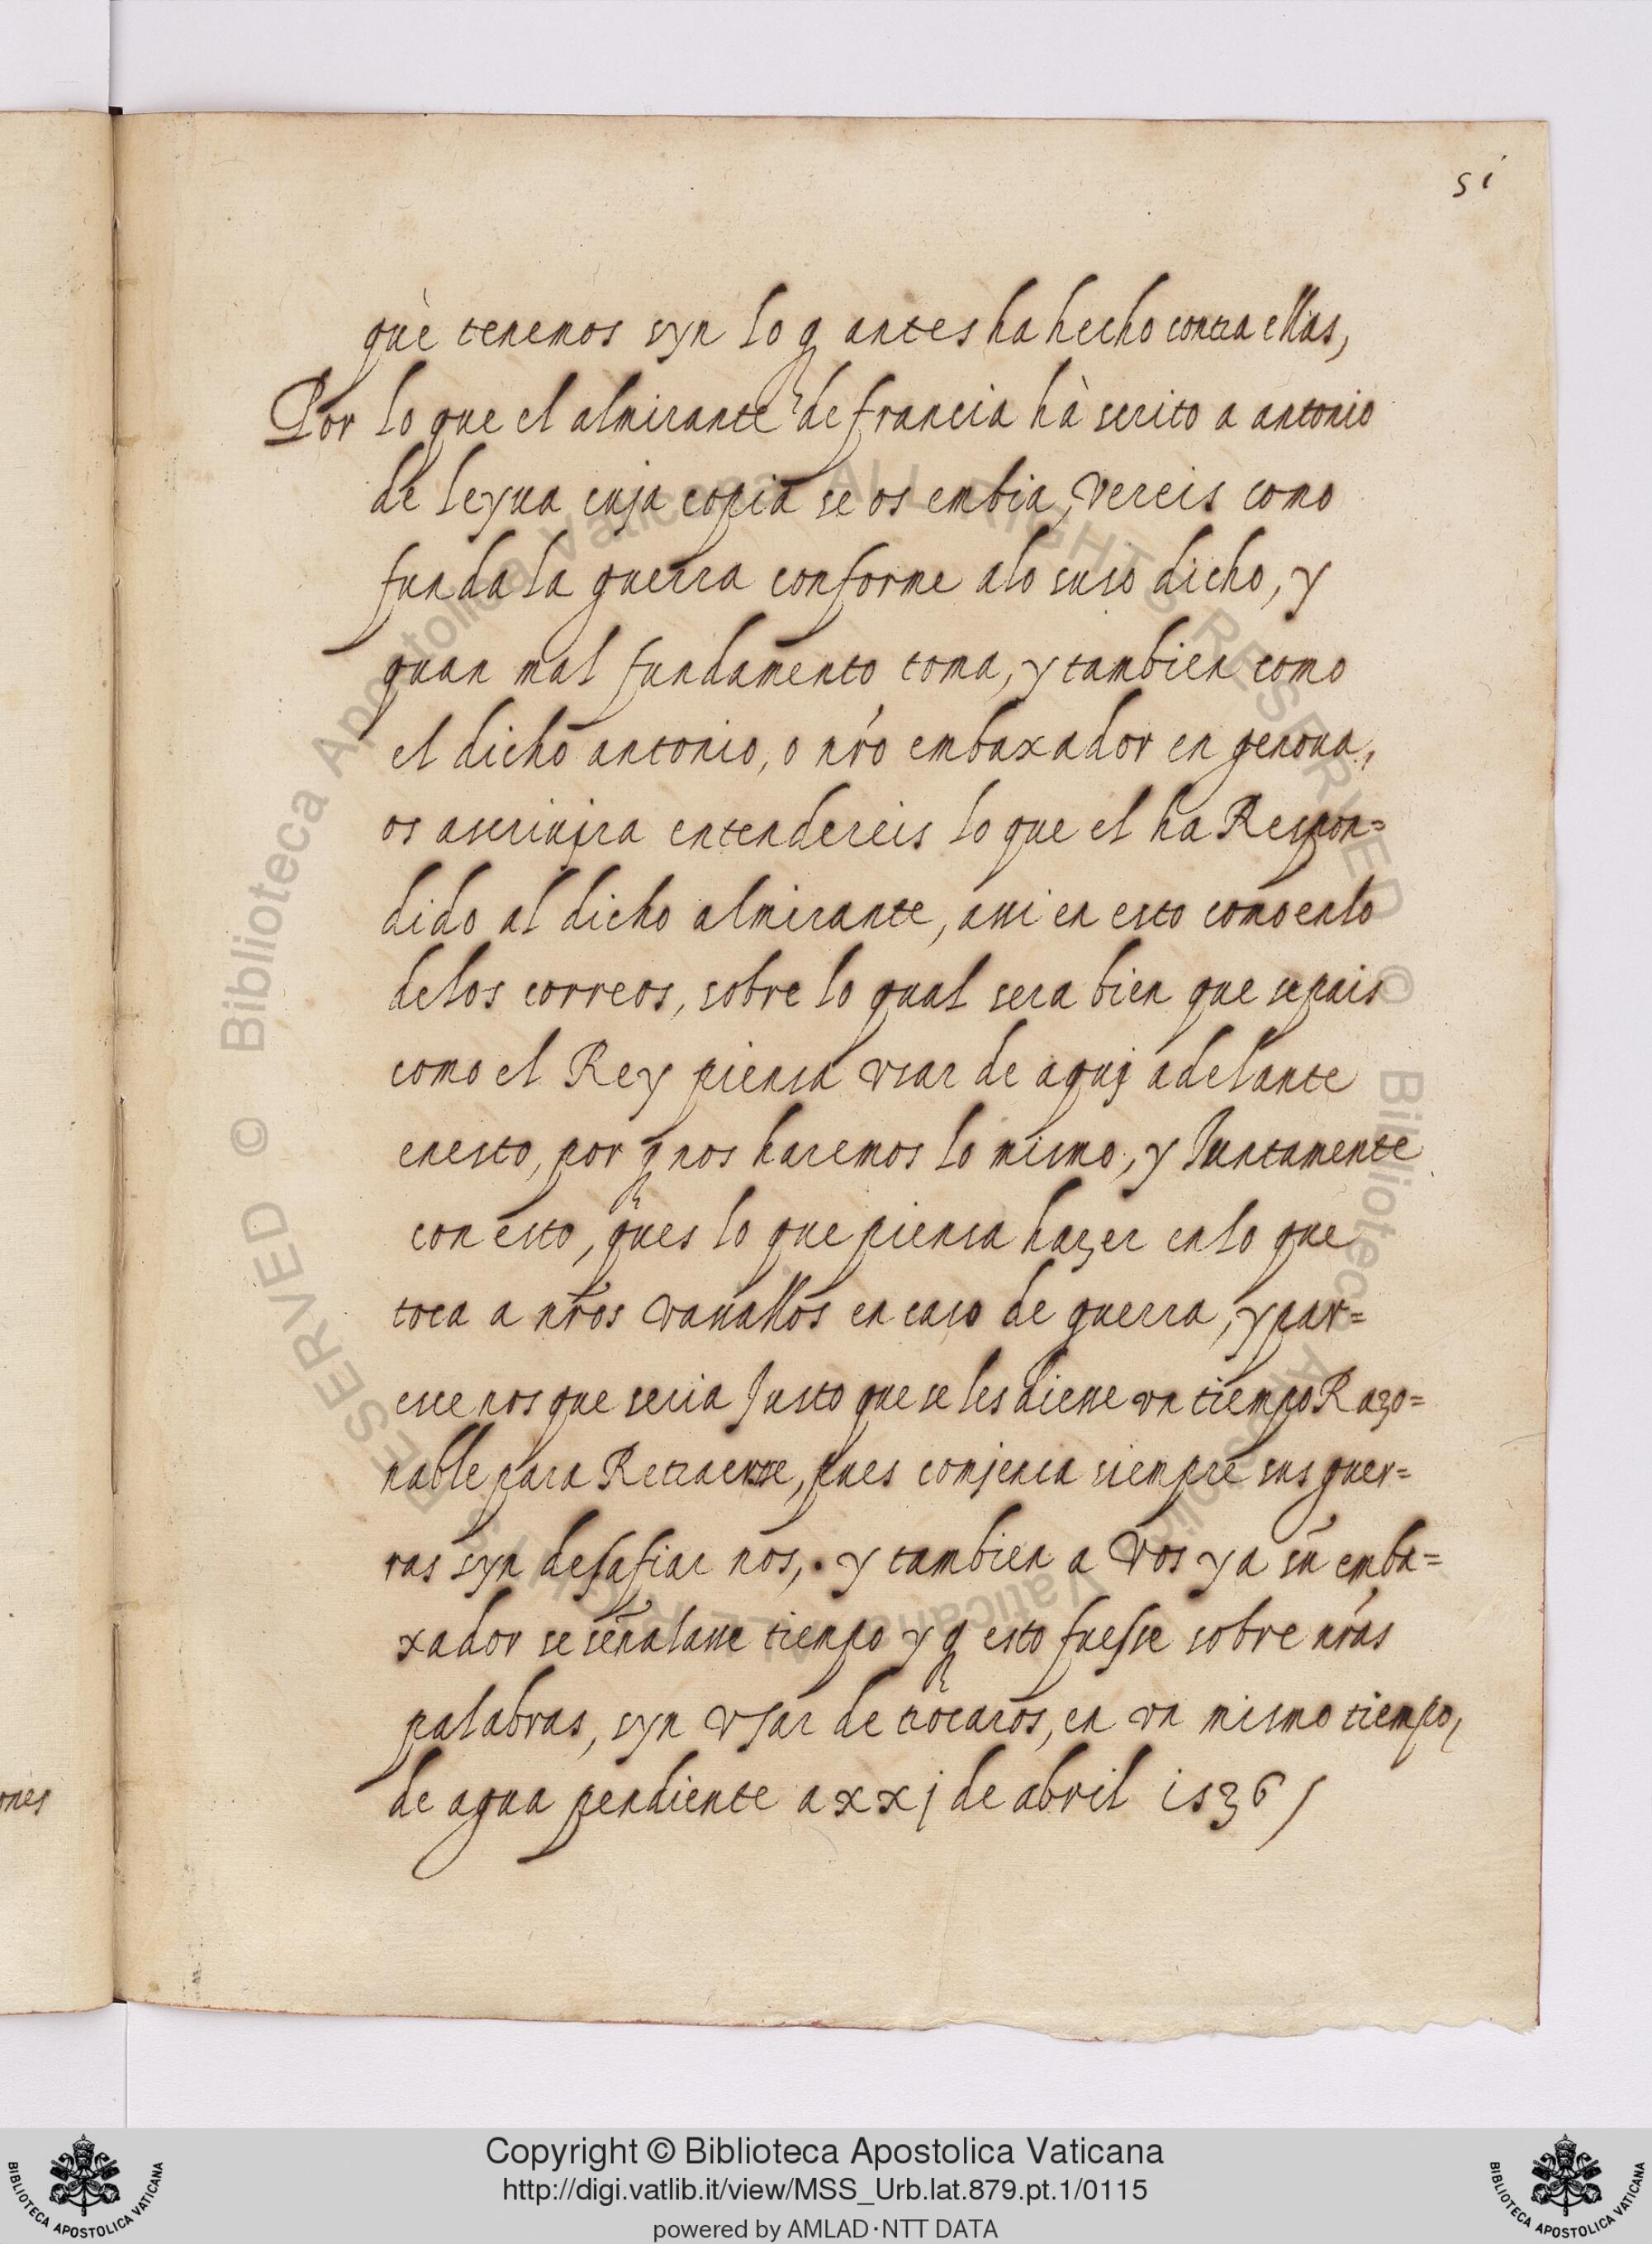 51
què tenemos syn lo q antes ha hecho contra ellas,
Por lo que el almirante de francia hà scrito a antonio
de leyua cuja copia se os embia, vereis como
funda la guerra conforme alo suso dicho, y
quan mal fundamento toma, y tambien como
el dicho antonio, o nro embaxador en genoua,
os ascriujra entendereis lo que el ha Respon=
dido al dicho almirante, assi en esto como enlo
delos correos, sobre lo qual sera bien que sepais
como el Rey piensa vsar de aquj adelante
enesto, por q nos haremos lo mismo, y Juntamente
con esto, ques lo que piensa hazer enlo que
toca a nros vassallos en caso de guerra, y par=
esce nos que seria Justo que se les diesse vn tiempo Razo=
nable para Retraerse, pues comjenca siempre sus guer=
ras syn desafiar nos, . y tambien a Vos y a su emba=
xador se señalasse tiempo y q esto fuesse sobre nras
palabras, syn vsar de trocaros, en vn mismo tiempo,
de agua pendiente a xxj de abril 1536 /
ones
© Biblioteca Apostolica Vaticana ALL RIGHTS RESERVED © Biblioteca Apostolica Vaticana ALL RIGHTS RESERVED
BIBLIOTECA APOSTOLICA VATICANA
Copyright © Biblioteca Apostolica Vaticana
http://digi.vatlib.it/view/MSS_Urb.lat.879.pt.1/0115
powered by AMLAD·NTT DATA
BIBLIOTECA APOSTOLICA VATICANA